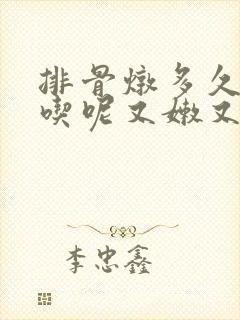 排骨炖多久
喫呢又嫩又
李忠鑫